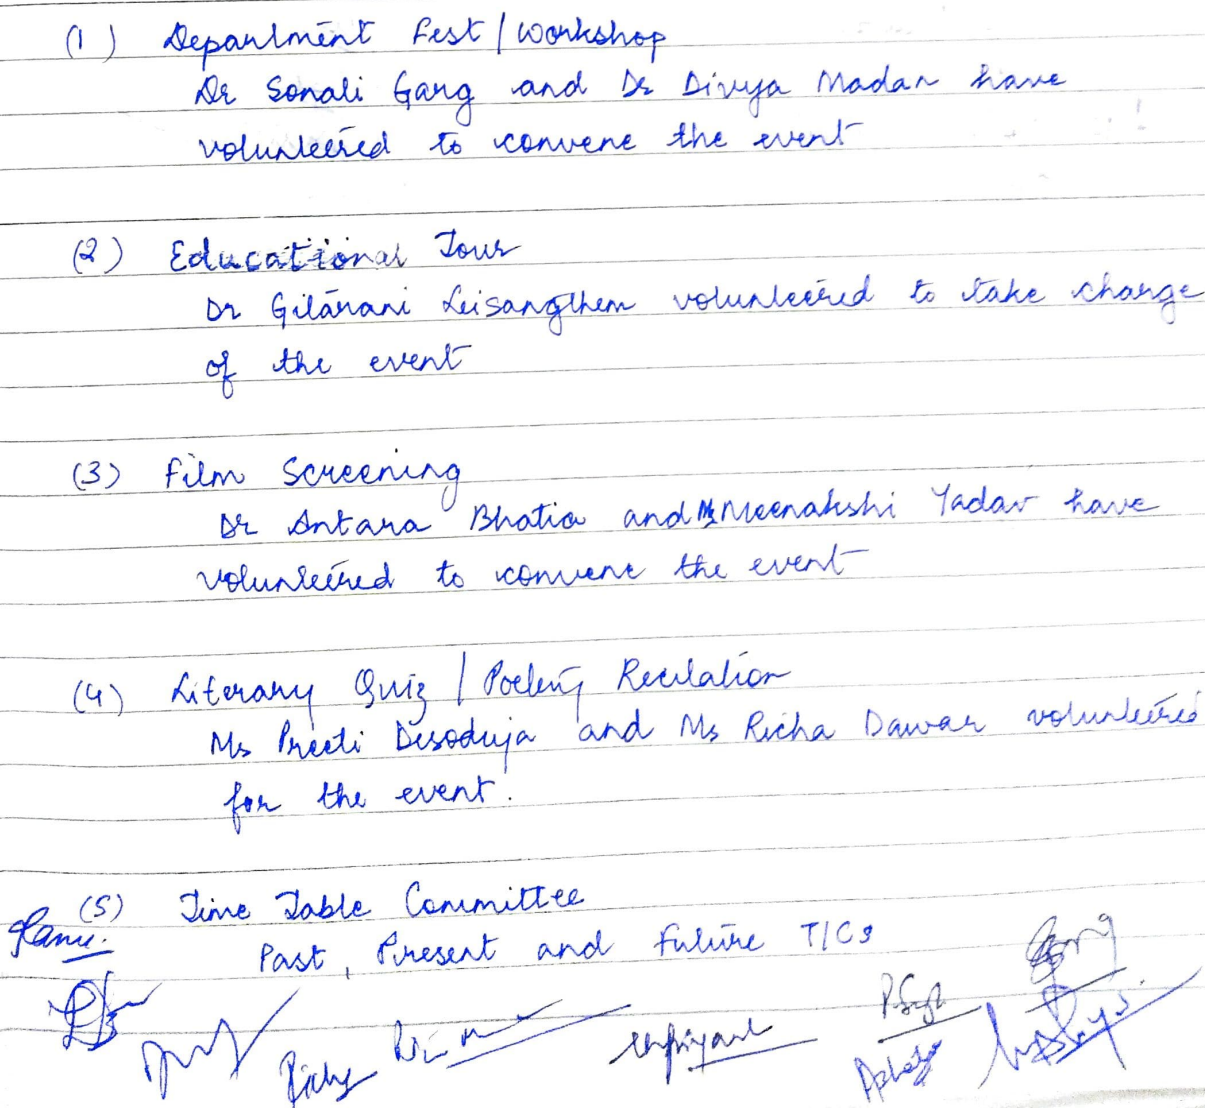 (1) Department Fest / Workshop
Dr Sonali Garg and Dr Divya Madan have
volunteered to convene the event
(2) Educational Tour
Dr Gitarani Leisangthem volunteered to take charge
of the event
(3) Film Screening
Dr Antara Bhatia and Ms Meenakshi Yadav have
volunteered to convene the event
(4) Literary Quiz / Poetry Recitation
Ms Preeti Desoduja and Ms Richa Dawar volunteered
for the event.
(5) Time Table Committee
Past, Present and Future TICs